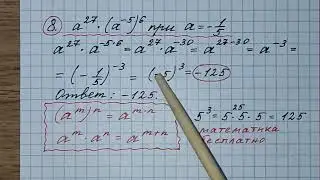 8. a²⁷ · (a⁻⁵)⁶ при a = -1/5
a²⁷ · a⁻⁵·⁶ = a²⁷ · a⁻³⁰ = a²⁷⁻³⁰ = a⁻³ =
= (-1/5)⁻³ = (-5)³ = -125
Ответ: -125.
(aᵐ)ⁿ = aᵐ·ⁿ
aᵐ · aⁿ = aᵐ⁺ⁿ
25
5³ = 5 · 5 · 5 = 125
математика
бесплатно